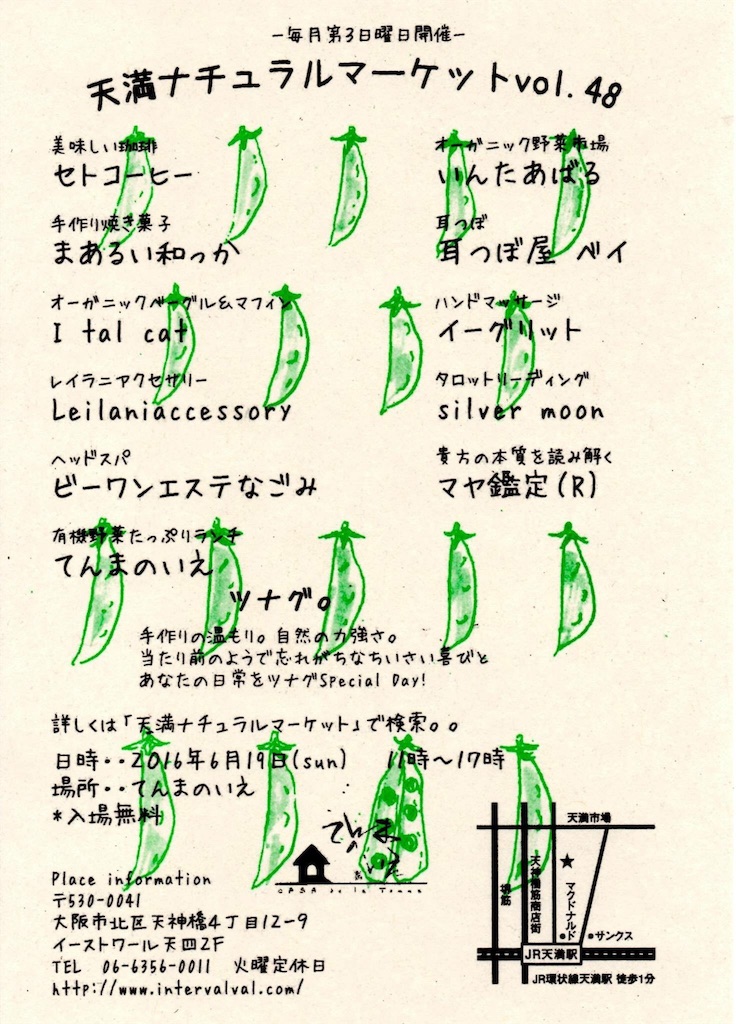 －毎月第3日曜日開催－
天満ナチュラルマーケットvol.48
美味しい珈琲
セトコーヒー
手作り焼き菓子
まあるい和っか
オーガニックベーグル&マフィン
I tal cat
レイラニアクセサリー
Leilaniaccessory
ヘッドスパ
ビーワンエステなごみ
有機野菜たっぷりランチ
てんまのいえ
オーガニック野菜市場
いんたあばる
耳つぼ
耳つぼ屋 ベイ
ハンドマッサージ
イーグリット
タロットリーディング
silver moon
貴方の本質を読み解く
マヤ鑑定(R)
ツナグ。
手作りの温もり。自然の力強さ。
当たり前のようで忘れがちなちいさい喜びと
あなたの日常をツナグSpecial Day!
詳しくは「天満ナチュラルマーケット」で検索。。
日時・・2016年6月19日(sun) 11時～17時
場所・・てんまのいえ
*入場無料
てんまのいえ
CASA de la Tenma
Place information
〒530-0041
大阪市北区天神橋4丁目12-9
イーストワール天四2F
TEL 06-6356-0011 火曜定休日
http://www.intervalval.com/
天満市場
堺筋
天神橋筋商店街
★
マクドナルド
サンクス
JR天満駅
JR環状線天満駅 徒歩1分